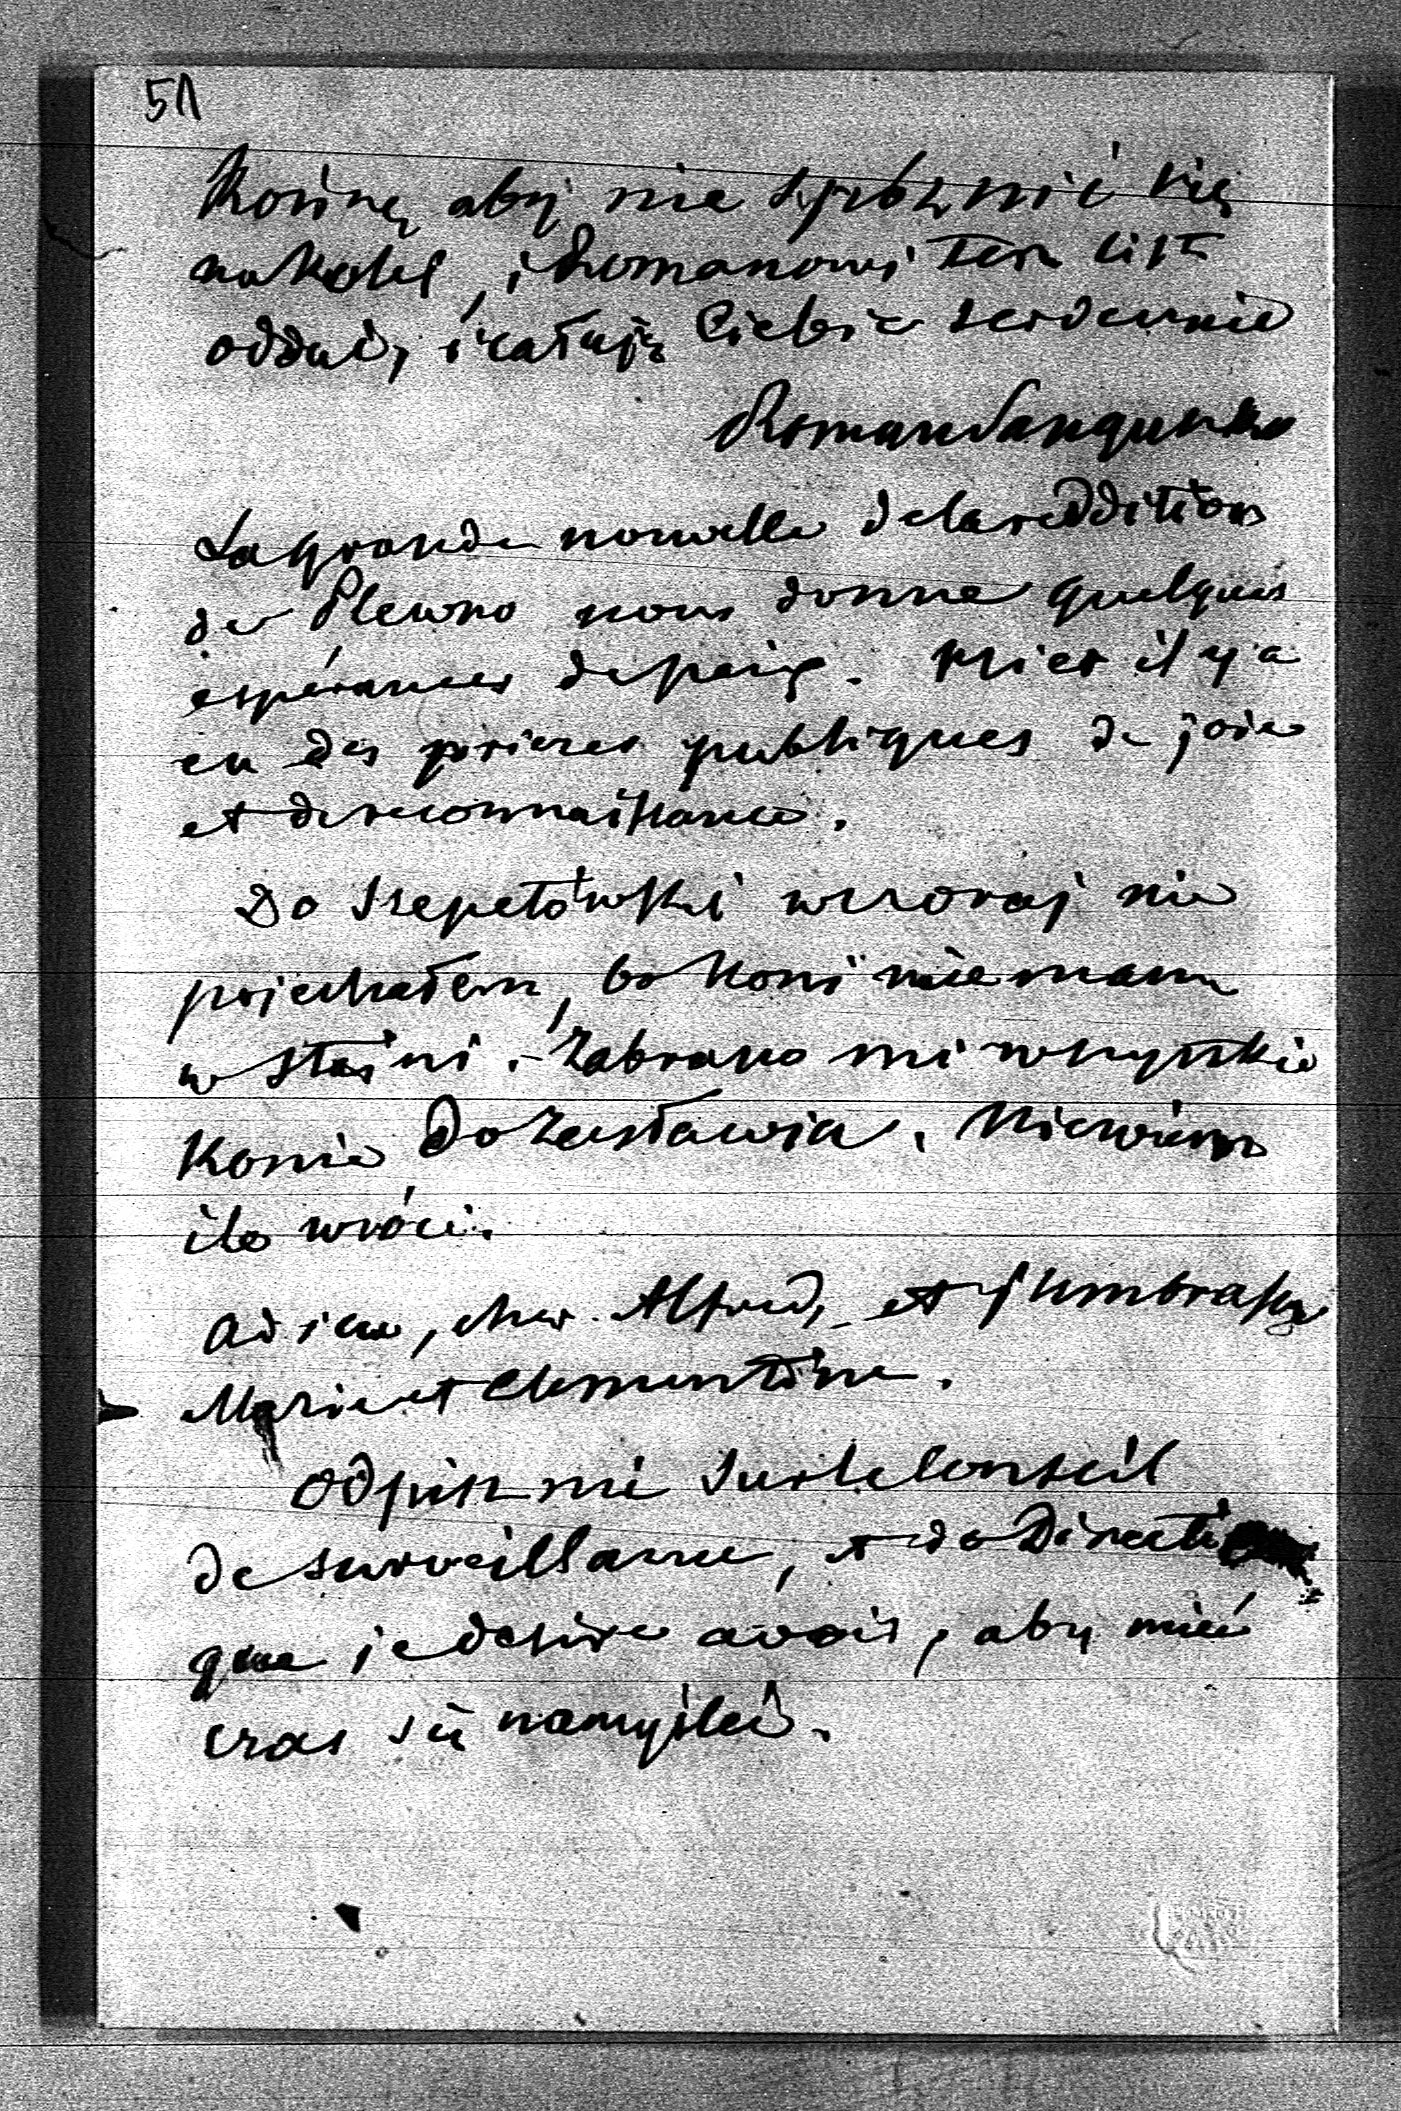 51
Kończę aby nie spóźnić się
na kolej, i Romanowi ten list
oddać, i całuję Ciebie serdecznie
Roman Sanguszko
La grande nouvelle de la reddition
de Plewno nous donne quelques
espérances de paix. Hier il y a
eu des prieres publiques de joie
et de reconnaissance.
Do Szepetówki wczoraj nie
pojechałem, bo koni nie mam
w stajni. Zabrano mi wszystkie
konie do Zasławia. Nie wiem
ile wróci.
Adieu, cher Alfred, et j'embrasse
Marie et Clementine.
Odpisz mi sur le Conseil
de surveillance, et do Directi
que je desire avoir, aby mieć
czas się namyśleć.